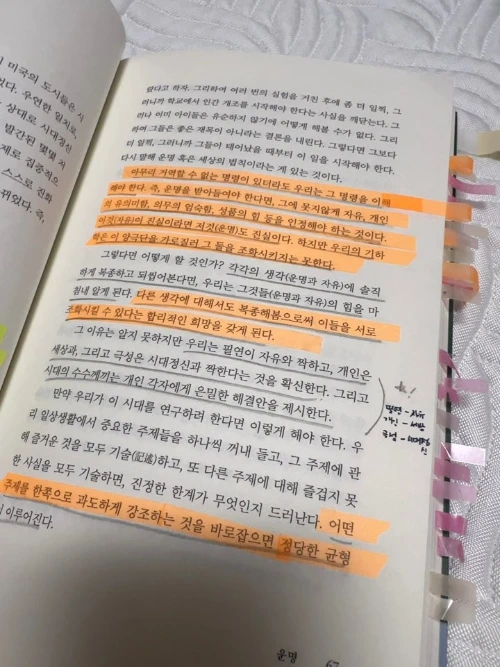 미국의 도시들은 시
었다. 우연한 일치로,
상대로 시대정신
발간된 몇몇 저
제로 집중적으
스스로 진화
뀌었다. 즉,
왔다고 하자. 그리하여 여러 번의 실험을 거친 후에 좀 더 일찍, 그
러니까 학교에서 인간 개조를 시작해야 한다는 사실을 깨닫는다. 그
러나 어미 아이들은 유순하지 않기에 어떻게 해볼 수가 없다. 그리
하여 그들은 좋은 재목이 아니라는 결론을 내린다. 그렇다면 그보다
더 일찍, 그러니까 그들이 태어났을 때부터 이 일을 시작해야 한다.
다시 말해 운명 혹은 세상의 법칙이라는 게 있는 것이다.
아무리 거역할 수 없는 명령이 있더라도 우리는 그 명령을 이해
해야 한다. 즉, 운명을 받아들여야 한다면, 그에 못지않게 자유, 개인
의 유의미함, 의무의 엄숙함, 성품의 힘 등을 인정해야 하는 것이다.
이것(자유)이 진실이라면 저것(운명)도 진실이다. 하지만 우리의 기하
학은 이 양극단을 가로질러 그 둘을 조화시키지는 못한다.
그렇다면 어떻게 할 것인가? 각각의 생각(운명과 자유)에 솔직
하게 복종하고 되씹어본다면, 우리는 그것들(운명과 자유)의 힘을 마
침내 알게 된다. 다른 생각에 대해서도 복종해봄으로써 이들을 서로
조화시킬 수 있다는 합리적인 희망을 갖게 된다.
그 이유는 알지 못하지만 우리는 필연이 자유와 짝하고, 개인은
세상과, 그리고 극성은 시대정신과 짝한다는 것을 확신한다. 그리고
시대의 수수께끼는 개인 각자에게 은밀한 해결안을 제시한다.
만약 우리가 이 시대를 연구하려 한다면 이렇게 해야 한다. 우
리 일상생활에서 중요한 주제들을 하나씩 꺼내 들고, 그 주제에 관
해 즐거운 것을 모두 기술(記述)하고, 또 다른 주제에 대해 즐겁지 못
한 사실을 모두 기술하면, 진정한 한계가 무엇인지 드러난다. 어떤
주제를 한쪽으로 과도하게 강조하는 것을 바로잡으면 정당한 균형
이 이루어진다.
필연 - 자유
개인 - 세상
극성 - 시대정
신
운명 67